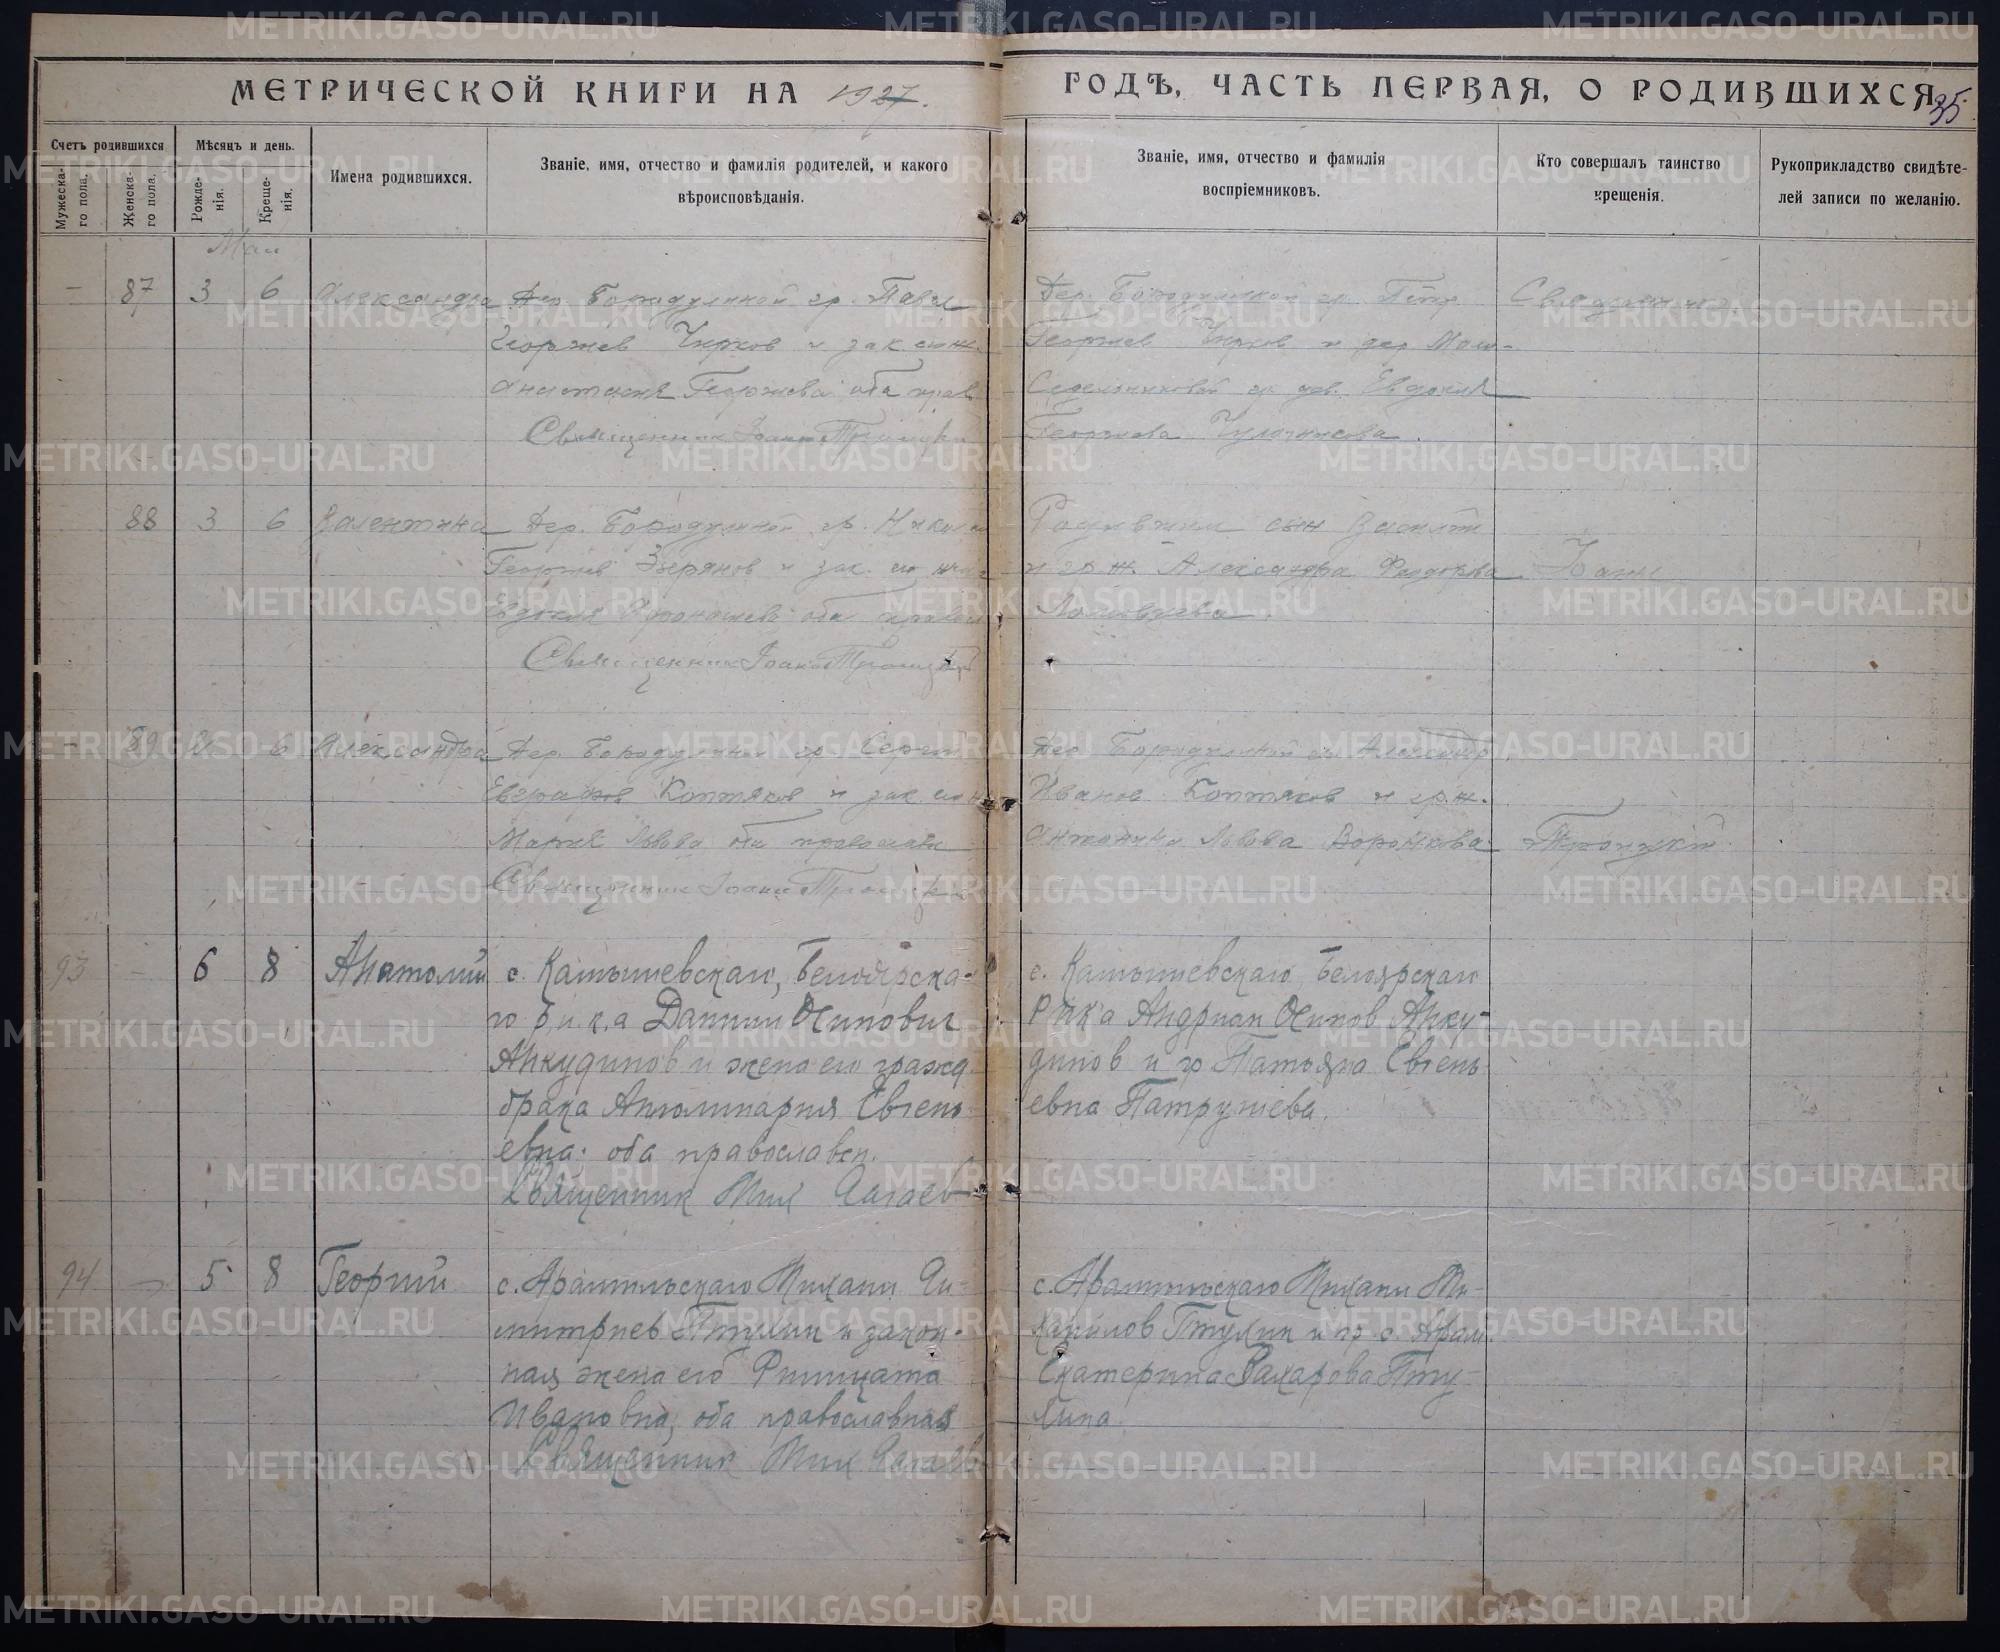 МЕТРИЧЕСКОЙ КНИГИ НА 1927.
ГОДЪ, ЧАСТЬ ПЕРВАЯ, О РОДИВШИХСЯ
35
Счетъ родившихся
Мужеска-
го пола.
Женска-
го пола.
Мѣсяцъ и день.
Рожде-
нія.
Креще-
нія.
Имена родившихся.
Званіе, имя, отчество и фамилія родителей, и какого
вѣроисповѣданія.
Званіе, имя, отчество и фамилія
воспріемниковъ.
Кто совершалъ таинство
крещенія.
Рукоприкладство свидѣте-
лей записи по желанію.
Май
– 87 3 6 Александра
Дер. Бородулиной гр. Павел
Георгиев Чирков и зак. его ж.
Анастасия Георгиева оба прав.
Священник Иоанн Троицкий
Дер. Бородулиной гр. Петр
Георгиев Чирков и дер.
Седельниковой гр. дев. Евдокия
Георгиева
Священник
88 3 6 Валентина
Дер. Бородулиной гр. Николай
Георгиев Зырянов и зак. его жена
Евдокия оба правосл.
Священник Иоанн Троицкий
сын Василий
и гр. ж. Александра Федорова
Иоанн
– 89 6 Александра
Дер. Бородулиной гр. Сергий
Евграфов Коптяков и зак. его ж.
Мария Львова оба православн
Священник Иоанн Троицкий
Дер. Бородулиной гр. Александр
Иванов Коптяков и гр. ж.
Антонина Львова Воронкова
Троицкий
93 – 6 8 Анатолий
с. Камышевскаго, Белоярска-
го р.и.к.а Даниил Осипович
Анкудинов и жена его гражд
брака Аполлинария Евгень-
евна: оба православн.
Священник Мих
с. Камышевскаго Белоярскаго
Рика Андриан Осипов Анку-
динов и гр Татьяна Евгень-
евна Патрушева.
94 – 5 8 Георгий
с. Арамильскаго Михаил Ди-
митриев Птухин и закон-
ная жена его
Ивановна, оба православная
Священник Мих
с. Арамильскаго Михаил Ми-
хайлов Птухин и гр. с. Арам.
Екатерина Захарова Пту-
хина
METRIKI.GASO-URAL.RU